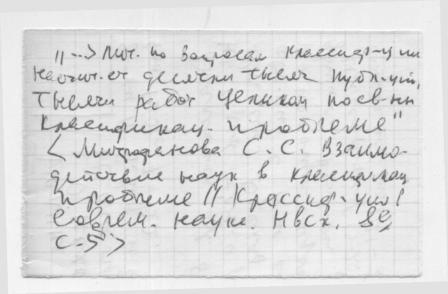 "<..> Лит. по вопросам классиф-ции
насчит-ет десятки тысяч публ-ций,
тысячи работ целиком посв-ны
классификац. проблеме"
< Митрофанова С. С. Взаимо-
действие наук в классификац
проблеме // Классиф-ция в
соврем. науке. Нвсх. 89,
С.5 >